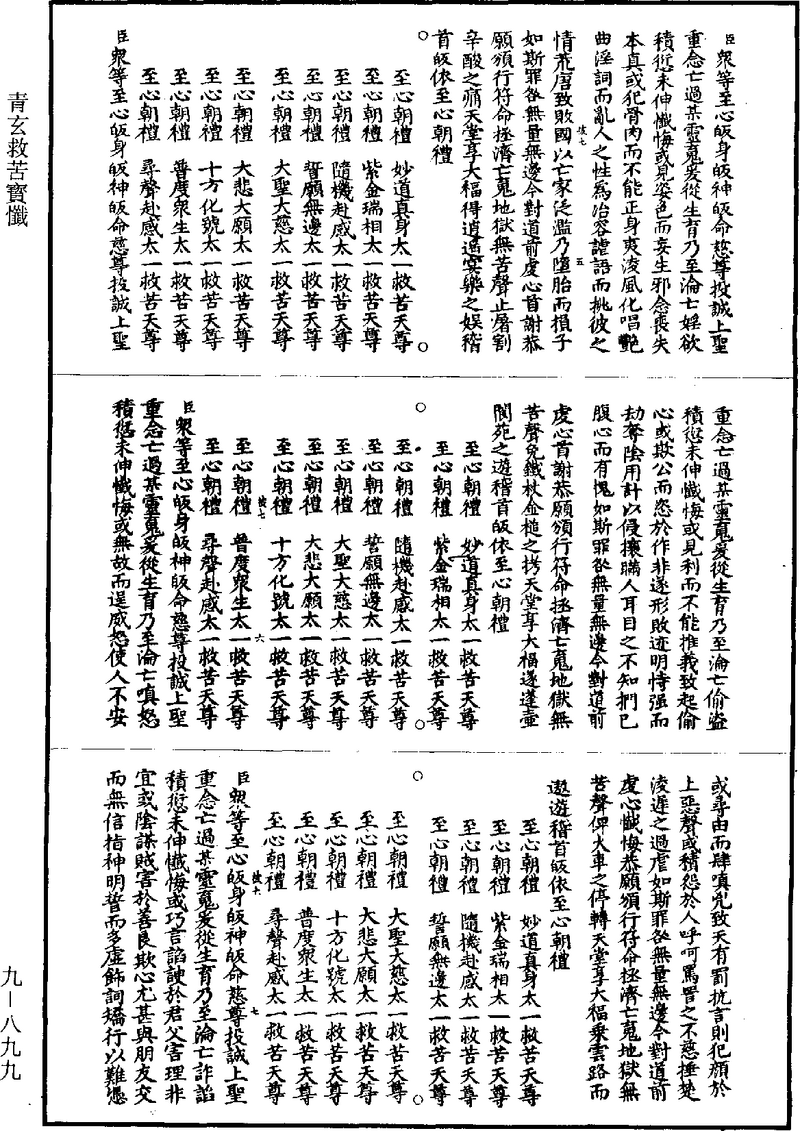 青玄救苦寳懺
臣衆等至心皈身皈神皈命慈尊投誠上聖
重念亡過某靈䰟爰從生育乃至淪亡婬欲
積愆未伸懺悔或見姿色而妄生邪念喪失
本真或犯骨肉而不能正身夷淩風化唱艷
曲淫詞而亂人之性爲冶容謔語而挑彼之
情荒唐致敗國以亡家泛濫乃墮胎而損子
如斯罪咎無量無邊今對道前虔心首謝恭
願頒行符命拯濟亡䰟地獄無苦聲止屠割
辛酸之痛天堂享大福得逍遥宴樂之娱稽
首皈依至心朝禮
至心朝禮 妙道真身太一救苦天尊
至心朝禮 紫金瑞相太一救苦天尊
至心朝禮 隨機赴感太一救苦天尊
至心朝禮 誓願無邊太一救苦天尊
至心朝禮 大聖大慈太一救苦天尊
至心朝禮 大悲大願太一救苦天尊
至心朝禮 十方化號太一救苦天尊
至心朝禮 普度衆生太一救苦天尊
至心朝禮 尋聲赴感太一救苦天尊
臣衆等至心皈身皈神皈命慈尊投誠上聖
重念亡過某靈䰟爰從生育乃至淪亡偷盜
積愆未伸懺悔或見利而不能推義致起偷
心或欺公而恣於作非遂形敗迹明恃强而
劫奪陰用計以侵攘瞞人耳目之不知捫已
腹心而有愧如斯罪咎無量無邊今對道前
虔心首謝恭願頒行符命拯濟亡䰟地獄無
苦聲免鐵杖金槌之拷天堂享大福遂蓬壺
閬苑之遊稽首皈依至心朝禮
至心朝禮 妙道真身太一救苦天尊
至心朝禮 紫金瑞相太一救苦天尊
至心朝禮 隨機赴感太一救苦天尊
至心朝禮 誓願無邊太一救苦天尊
至心朝禮 大聖大慈太一救苦天尊
至心朝禮 大悲大願太一救苦天尊
至心朝禮 十方化號太一救苦天尊
至心朝禮 普度衆生太一救苦天尊
至心朝禮 尋聲赴感太一救苦天尊
臣衆等至心皈身皈神皈命慈尊投誠上聖
重念亡過某靈䰟爰從生育乃至淪亡嗔怒
積愆未伸懺悔或無故而逞威怒使人不安
或尋由而肆嗔兇致天有罰抗言則犯顔於
上惡聲或積怨於人呼呵罵詈之不慈捶楚
淩遲之過虐如斯罪咎無量無邊今對道前
虔心懺悔恭願頒行符命拯濟亡䰟地獄無
苦聲俾火車之停轉天堂享大福乗雲路而
遨遊稽首皈依至心朝禮
至心朝禮 妙道真身太一救苦天尊
至心朝禮 紫金瑞相太一救苦天尊
至心朝禮 隨機赴感太一救苦天尊
至心朝禮 誓願無邊太一救苦天尊
至心朝禮 大聖大慈太一救苦天尊
至心朝禮 大悲大願太一救苦天尊
至心朝禮 十方化號太一救苦天尊
至心朝禮 普度衆生太一救苦天尊
至心朝禮 尋聲赴感太一救苦天尊
臣衆等至心皈身皈神皈命慈尊投誠上聖
重念亡過某靈䰟爰從生育乃至淪亡詐諂
積愆未伸懺悔或巧言諂諛於君父害理非
宜或陰謀賊害於善良欺心尤甚與朋友交
而無信指神明誓而多虚飾詞矯行以難憑
九-八九九